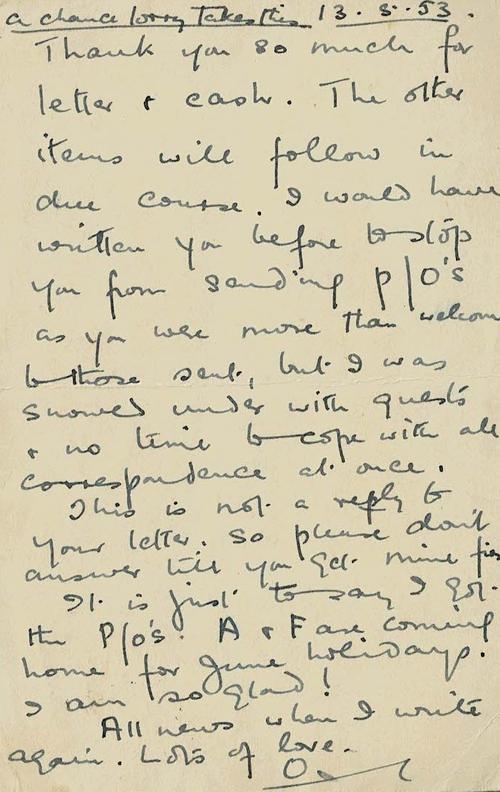 a chance lorry takes this 13.5.53.
Thank you so much for
letter & cash. The other
items will follow in
due course. I would have
written you before to stop
you from sending P/O's
as you were more than welcome
to those sent, but I was
snowed under with guests
& no time to cope with all
correspondence at once.
This is not a reply to
your letter. So please don't
answer till you get mine first
It is just to say I got
the P/o's. A & F are coming
home for June holidays.
I am so glad!
All news when I write
again. Lots of love.